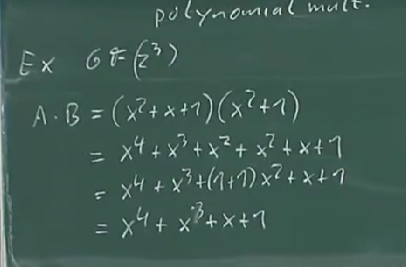 polynomial mult.
Ex GF(2³)
A·B = (x²+x+1)(x²+1)
= x⁴+x³+x²+x²+x+1
= x⁴+x³+(1+1)x²+x+1
= x⁴+x³+x+1